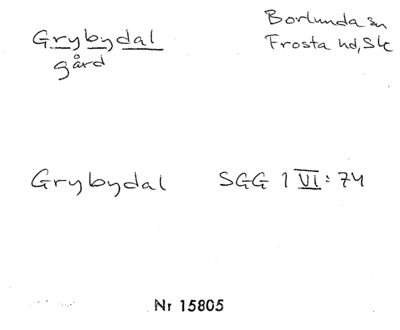 Grybydal
gård
Borlunda sn
Frosta hd, Sk
Grybydal SGG 1 VI: 74
Nr 15805